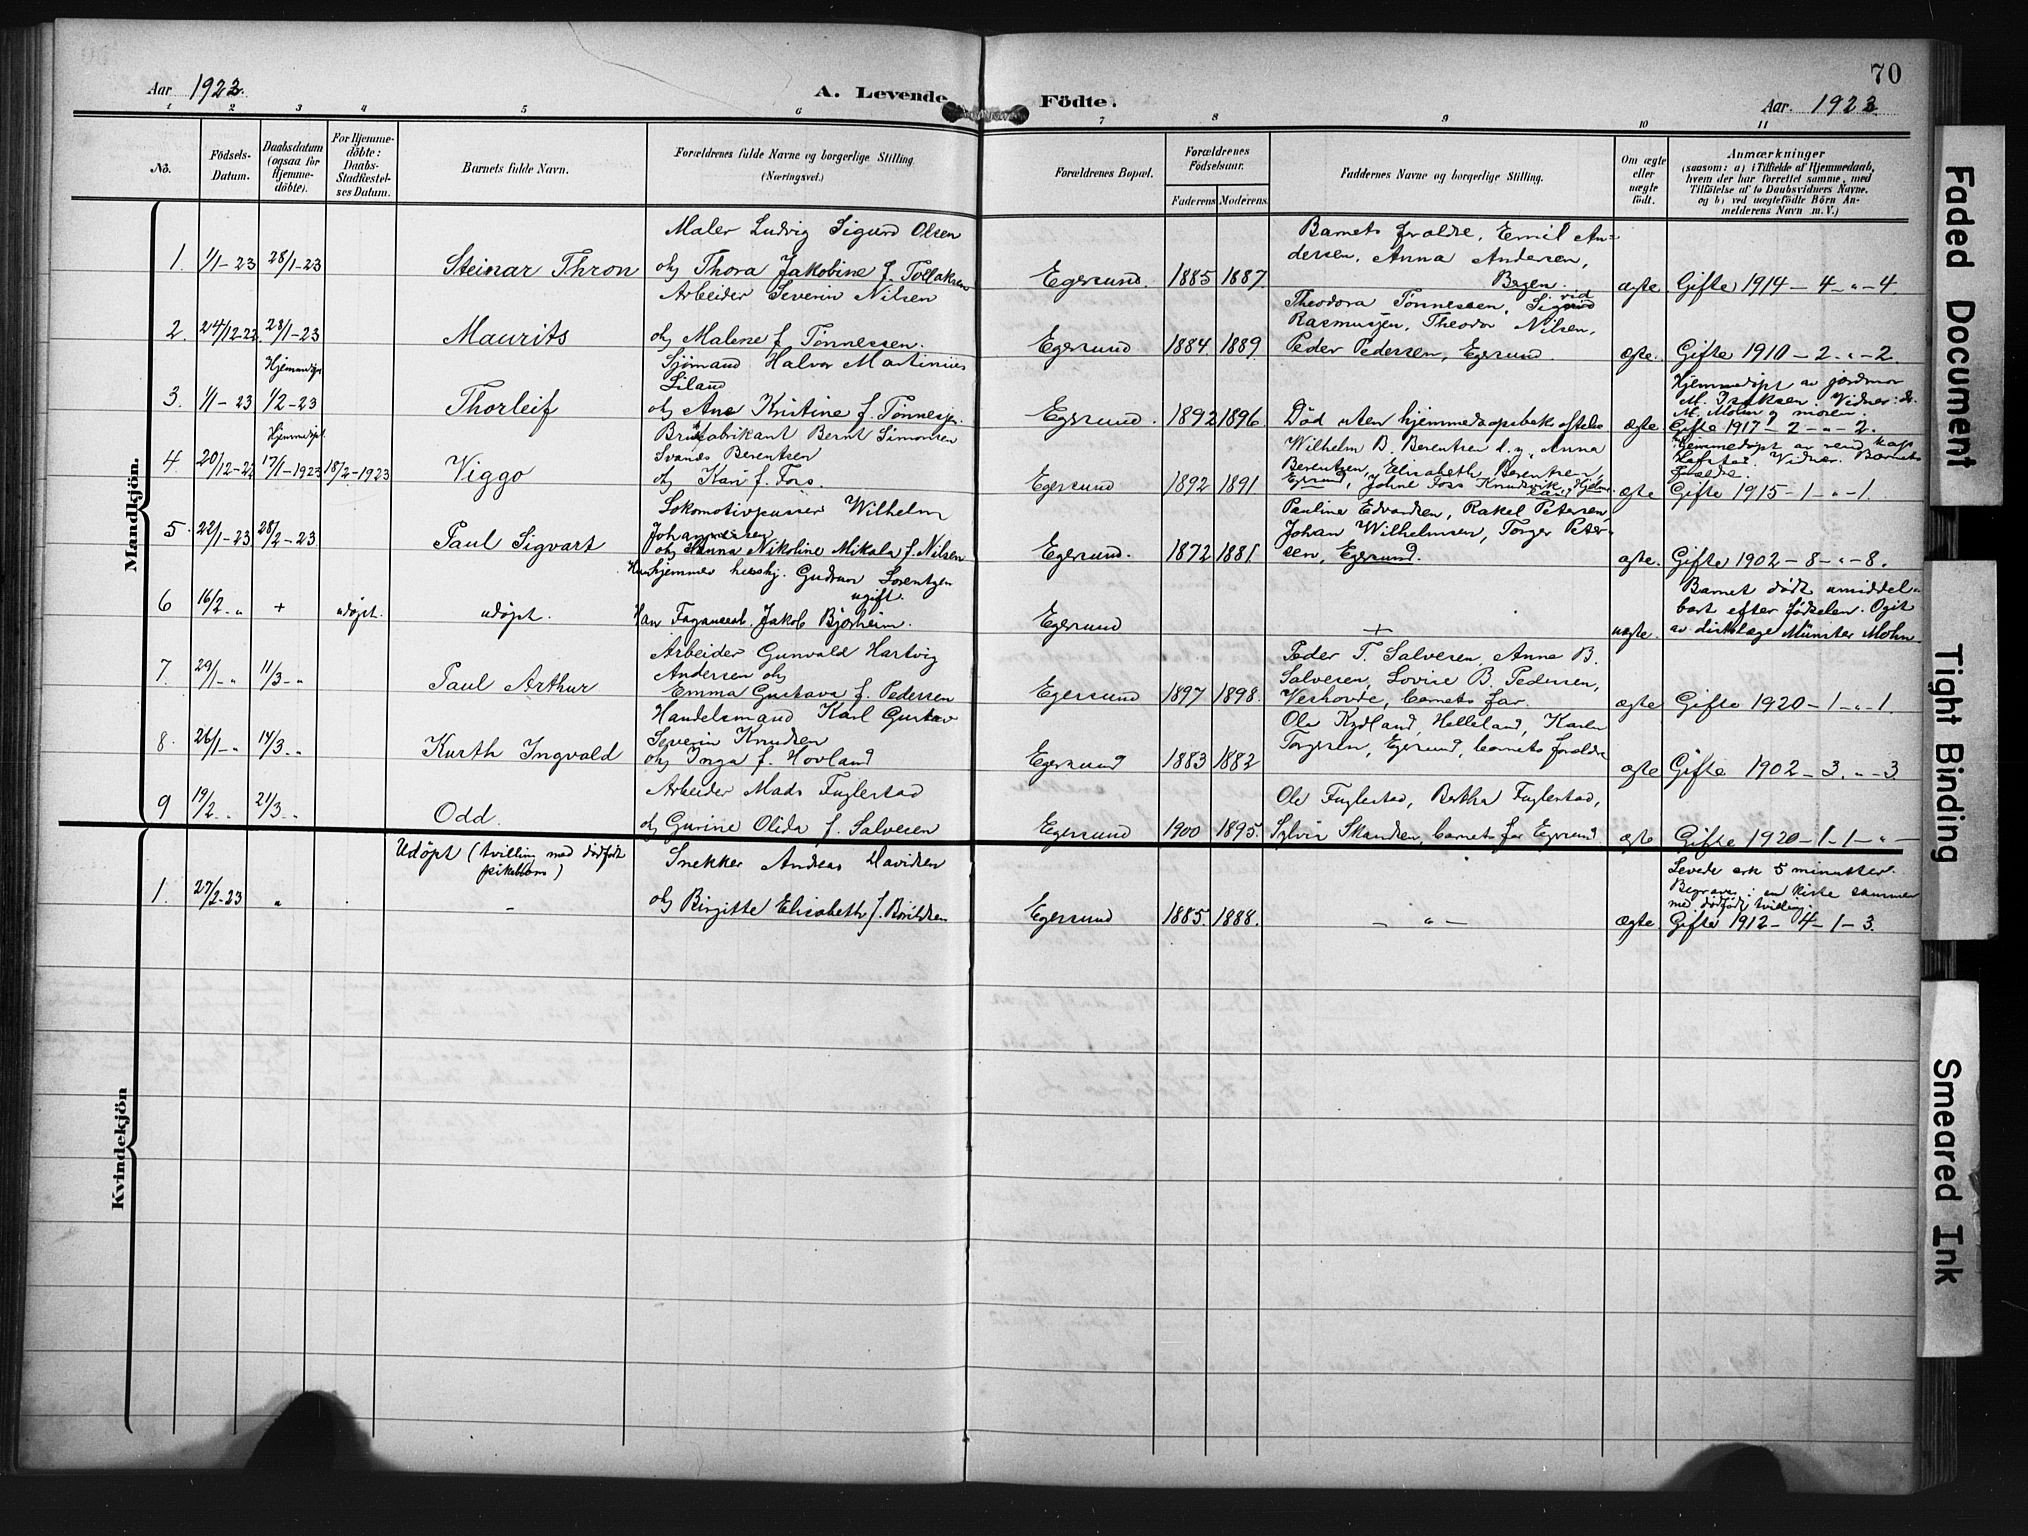 70
Aar 1923.
A. Levende Födte.
Aar. 1923
1 2 3 4 5 6 7 8 9 10 11
No.
Födsels-
Datum.
Daabsdatum
(ogsaa for
Hjemme-
döbte).
For Hjemme-
döbte:
Daabs-
Stadfæstel-
ses Datum.
Barnets fulde Navn.
Forældrenes fulde Navne og borgerlige Stilling.
(Næringsvei.)
Forældrenes Bopæl.
Forældrenes
Födselsaar.
Faderens
Moderens
Faddernes Navne og borgerlige Stilling.
Om ægte
eller
uægte
födt.
Anmærkninger
(saasom: a) i Tilfælde af Hjemmedaab,
hvem der har forrettet samme, med
Tilföielse af to Daabsvidners Navne.
og b) ved uægtefödte Börn An-
melderens Navn m. V.)
Mandkjön.
1. 1/1-23 28/1-23 Steinar Thron
Maler Ludvig Sigurd Olsen
og Thora Jakobine f. Tollaksen
Egersund. 1885 1887.
Barnets foraldre, Emil An-
dersen, Anna Andersen,
ægte. Gifte 1914 - 4 - " - 4.
2. 24/12-22. 28/1-23 Maurits
Arbeider Severin Nilsen
og Malene f. Tønnessen.
Egersund 1884. 1889.
Theodora Tønnessen, Sigvrid
Rasmussen, Theodor Nilsen,
Peder Pedersen, Egersund.
ægte. Gifte 1910 - 2. " - 2.
3. 1/1-23 Hjemmedøpt
1/2-23 Thorleif
Sjømand Halvor Martinius
Liland
og Ane Kristine f. Tønnesen.
Egersund. 1892 1896
Død uten hjemmedaapsbekreftelse
ægte
Hjemmedøpt av jordmor
M. Isaksen. Vidner: dr.
M. Mohn og moren.
Gifte 1917 - 2 - " - 2.
4. 20/12-22 Hjemmedøpt
17/1-1923 18/2-1923 Viggo
Fabrikant Bernt Simonsen
Svanes Berentsen
og Kari f. Foss.
Egersund 1892 1891
Wilhelm B. Berentsen d. y., Anna
Berentsen, Elisabeth Berentsen,
Egersund, Johne Foss Knudsvik,
ægte
Hjemmedøpt av res. kap.
Hafstad. Vidner: Barnets
foraldre.
Gifte 1915 - 1 - " - 1.
5. 22/1-23 28/2-23 Paul Sigvart
Lokomotivpusser Wilhelm
Johannessen
og Anna Nikoline Mikala f. Nilsen
Egersund. 1872 1881.
Pauline Edvardsen, Rakel Petersen,
Johan Wilhelmsen, Torger Peter-
sen, Egersund.
ægte. Gifte 1902 - 8 - " - 8.
6 16/2 " + udøpt. udøpt.
Hun hjemmev. hushj. Gudrun Lorentzen
ugift.
Han Jakob Bjørheim.
Egersund
+
uægte.
Barnet døde umiddel-
bart efter fødselen. Opgit
av distr.læge Münster Mohn.
7. 29/1-" 11/3-" Paul Arthur
Arbeider Gunvald Hartvig
Andersen og
Emma Gustava f. Pedersen
Egersund 1897 1898.
Peder T. Salvesen, Anna B.
Salvesen, Lovise B. Pedersen,
Veshovde, barnets far.
ægte Gifte 1920 - 1 - " - 1.
8. 26/1-" 14/3-" Kurth Ingvald
Handelsmand Karl Gustav
Severin Knudsen
og Inga f. Hovland
Egersund 1883 1882
Ole Rydland, Helleland, Karen
Torgersen, Egersund, barnets foraldre
ægte Gifte 1902 - 3. " - 3
9 19/2 " 21/3-" Odd.
Arbeider Mads Fuglestad
og Gurine Olida f. Salvesen
Egersund 1900 1895.
Ole Fuglestad, Bertha Fuglestad,
Sylvia Skandsen, barnets far Egersund
ægte Gifte 1920 - 1 - 1 - " -
Kvindekjön
1. 27/2-23 "
Udøpt (tvilling med dødfødt
pikebarn)
-
Snekker Andreas Davidsen
og Birgitte Elisabeth f. Bårdsen
Egersund 1885. 1888.
- " -
ægte.
Levede ca 5 minutter.
Begraves i en kiste sammen
med dødfødt tvilling.
Gifte 1912 - 4 - 1 - 3.
Faded Document
Tight Binding
Smeared Ink